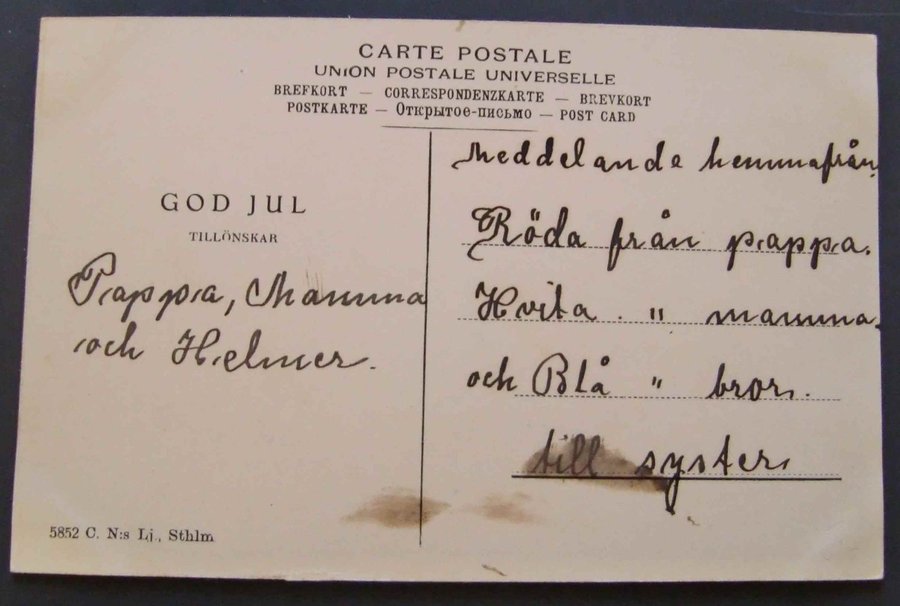 CARTE POSTALE
UNION POSTALE UNIVERSELLE
BREFKORT — CORRESPONDENZKARTE — BREVKORT
POSTKARTE — Открытое-письмо — POST CARD
GOD JUL
TILLÖNSKAR
Pappa, Mamma
och Helmer.
5852 C. N:s Lj., Sthlm
Meddelande hemmafrån.
Röda från pappa.
Hvita. " mamma.
och Blå " bror.
till syster